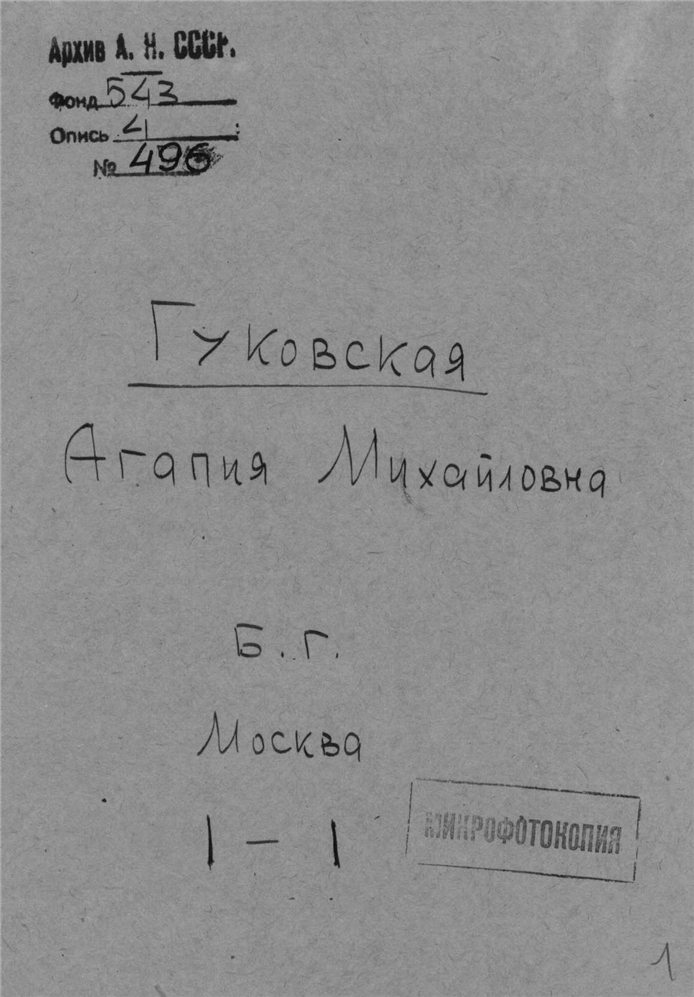 Архив А. Н. СССР.
Фонд 543
Опись 4
№ 496
Гуковская
Агапия Михайловна
Б. г.
Москва
1 – 1
МИКРОФОТОКОПИЯ
1